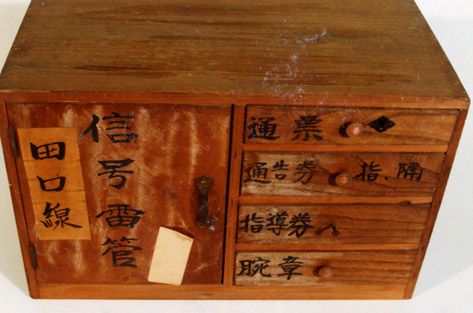 田口線
信号雷管
通票
通告券 指.隔
指導券
腕章